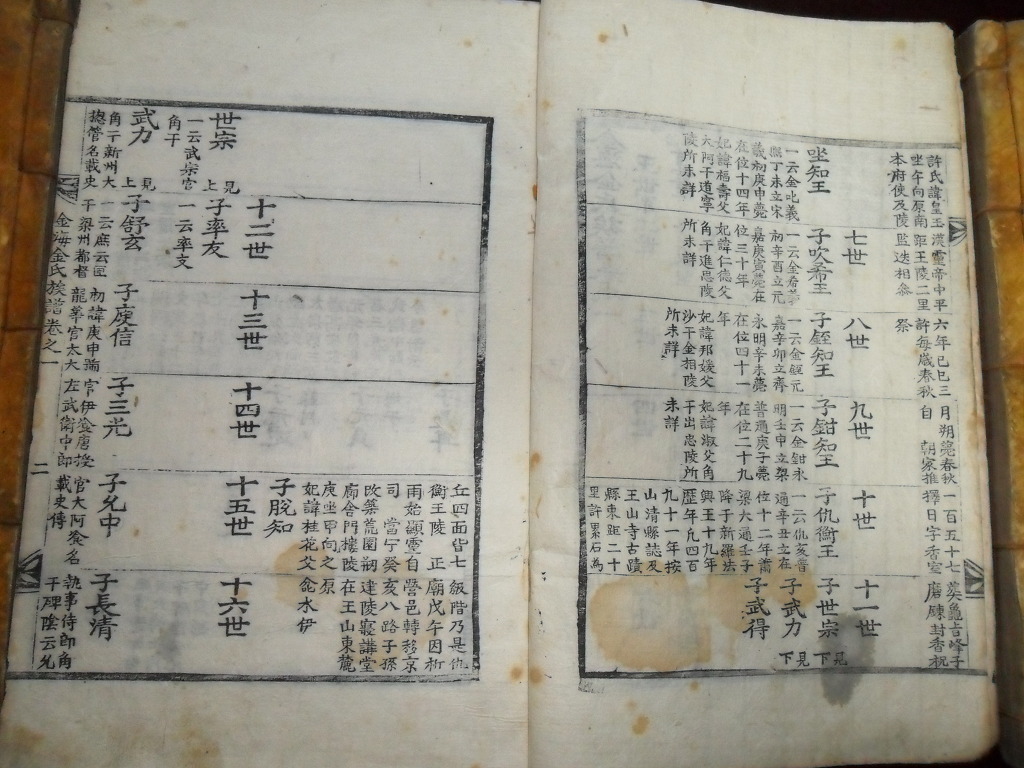 許氏諱皇玉漢靈帝中平六年己巳三月朔薨春秋一百五十七葬龜旨峰子
坐午向原南距王陵二里許每歲春秋自 朝家推擇日字香室磨鍊封香祝
本府使及陵監迭相參祭
坐知王
一云金叱義
熙丁未立宋
義初庚申薨
在位十四年
妃諱福壽父
大阿干道寧
陵所未詳
七世
子吹希王
一云金希
初辛酉立元
嘉庚寅薨在
位三十年
妃諱仁德父
角干進思陵
所未詳
八世
子銍知王
一云金銍元
嘉辛卯立齊
永明辛未薨
在位四十一
年
妃諱邦媛父
沙干金相陵
所未詳
九世
子鉗知王
一云金鉗永
明壬申立梁
普通庚子薨
在位二十九
年
妃諱淑父角
干出忠陵所
未詳
十世
子仇衡王
一云仇亥普
通辛丑立在
位十二年蕭
梁大通壬子
降于新羅法
興王十九年
歷年凡四百
九十一年按
山清縣誌及
王山寺古蹟
縣東距二十
里許累石為
十一世
子世宗 見下
子武力 見下
子武得
丘四面皆七級階乃是仇
衡王陵 正廟戊午因祈
雨始顯靈自營邑轉移京
司 當宁癸亥八路子孫
改築荒園嗣建陵寢講堂
廟會門樓陵在王山東麓
庚坐甲向之原
妃諱桂花父 水伊
子脫知
世宗
一云武宗官
角干
見上
武力
角干新州大
摠管名載史
見上
十二世
子率友
一云率支
子舒玄
一云庶云逗
干梁州都督
十三世
子庾信
初諱庚申諭
龍華官太大
十四世
官伊飡唐授
左武衛中郎
子三光
十五世
子允中
官大阿飡名
載史傳
十六世
子長清
執事侍郎角
干碑陰云允
金海金氏族譜卷之一 二